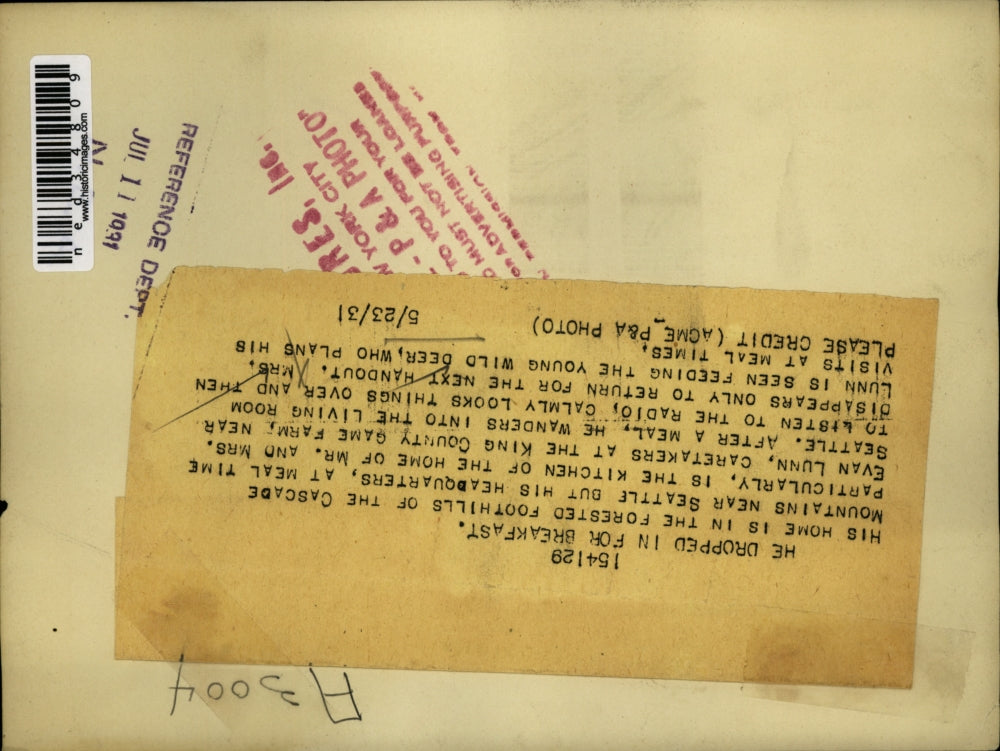 154129
HE DROPPED IN FOR BREAKFAST.
HIS HOME IS IN THE FORESTED FOOTHILLS OF THE CASCADE
MOUNTAINS NEAR SEATTLE BUT HIS HEADQUARTERS, AT MEAL TIME
PARTICULARLY, IS THE KITCHEN OF THE HOME OF MR. AND MRS.
EVAN LUNN, CARETAKERS AT THE KING COUNTY GAME FARM, NEAR
SEATTLE. AFTER A MEAL, HE WANDERS INTO THE LIVING ROOM
TO LISTEN TO THE RADIO, CALMLY LOOKS THINGS OVER AND THEN
DISAPPEARS ONLY TO RETURN FOR THE NEXT HANDOUT. MRS.
LUNN IS SEEN FEEDING THE YOUNG WILD DEER, WHO PLANS HIS
VISITS AT MEAL TIMES.
PLEASE CREDIT (ACME-P&A PHOTO) 5/23/31
A3004
REFERENCE DEPT.
JUL 11 1931
N
ned34809
www.historicimages.com
URES, INC.
W YORK CITY
- P & A PHOTO"
TO YOU FOR YOUR
MUST NOT BE LOANED
FOR ADVERTISING PURPOSES
PERMISSION FROM